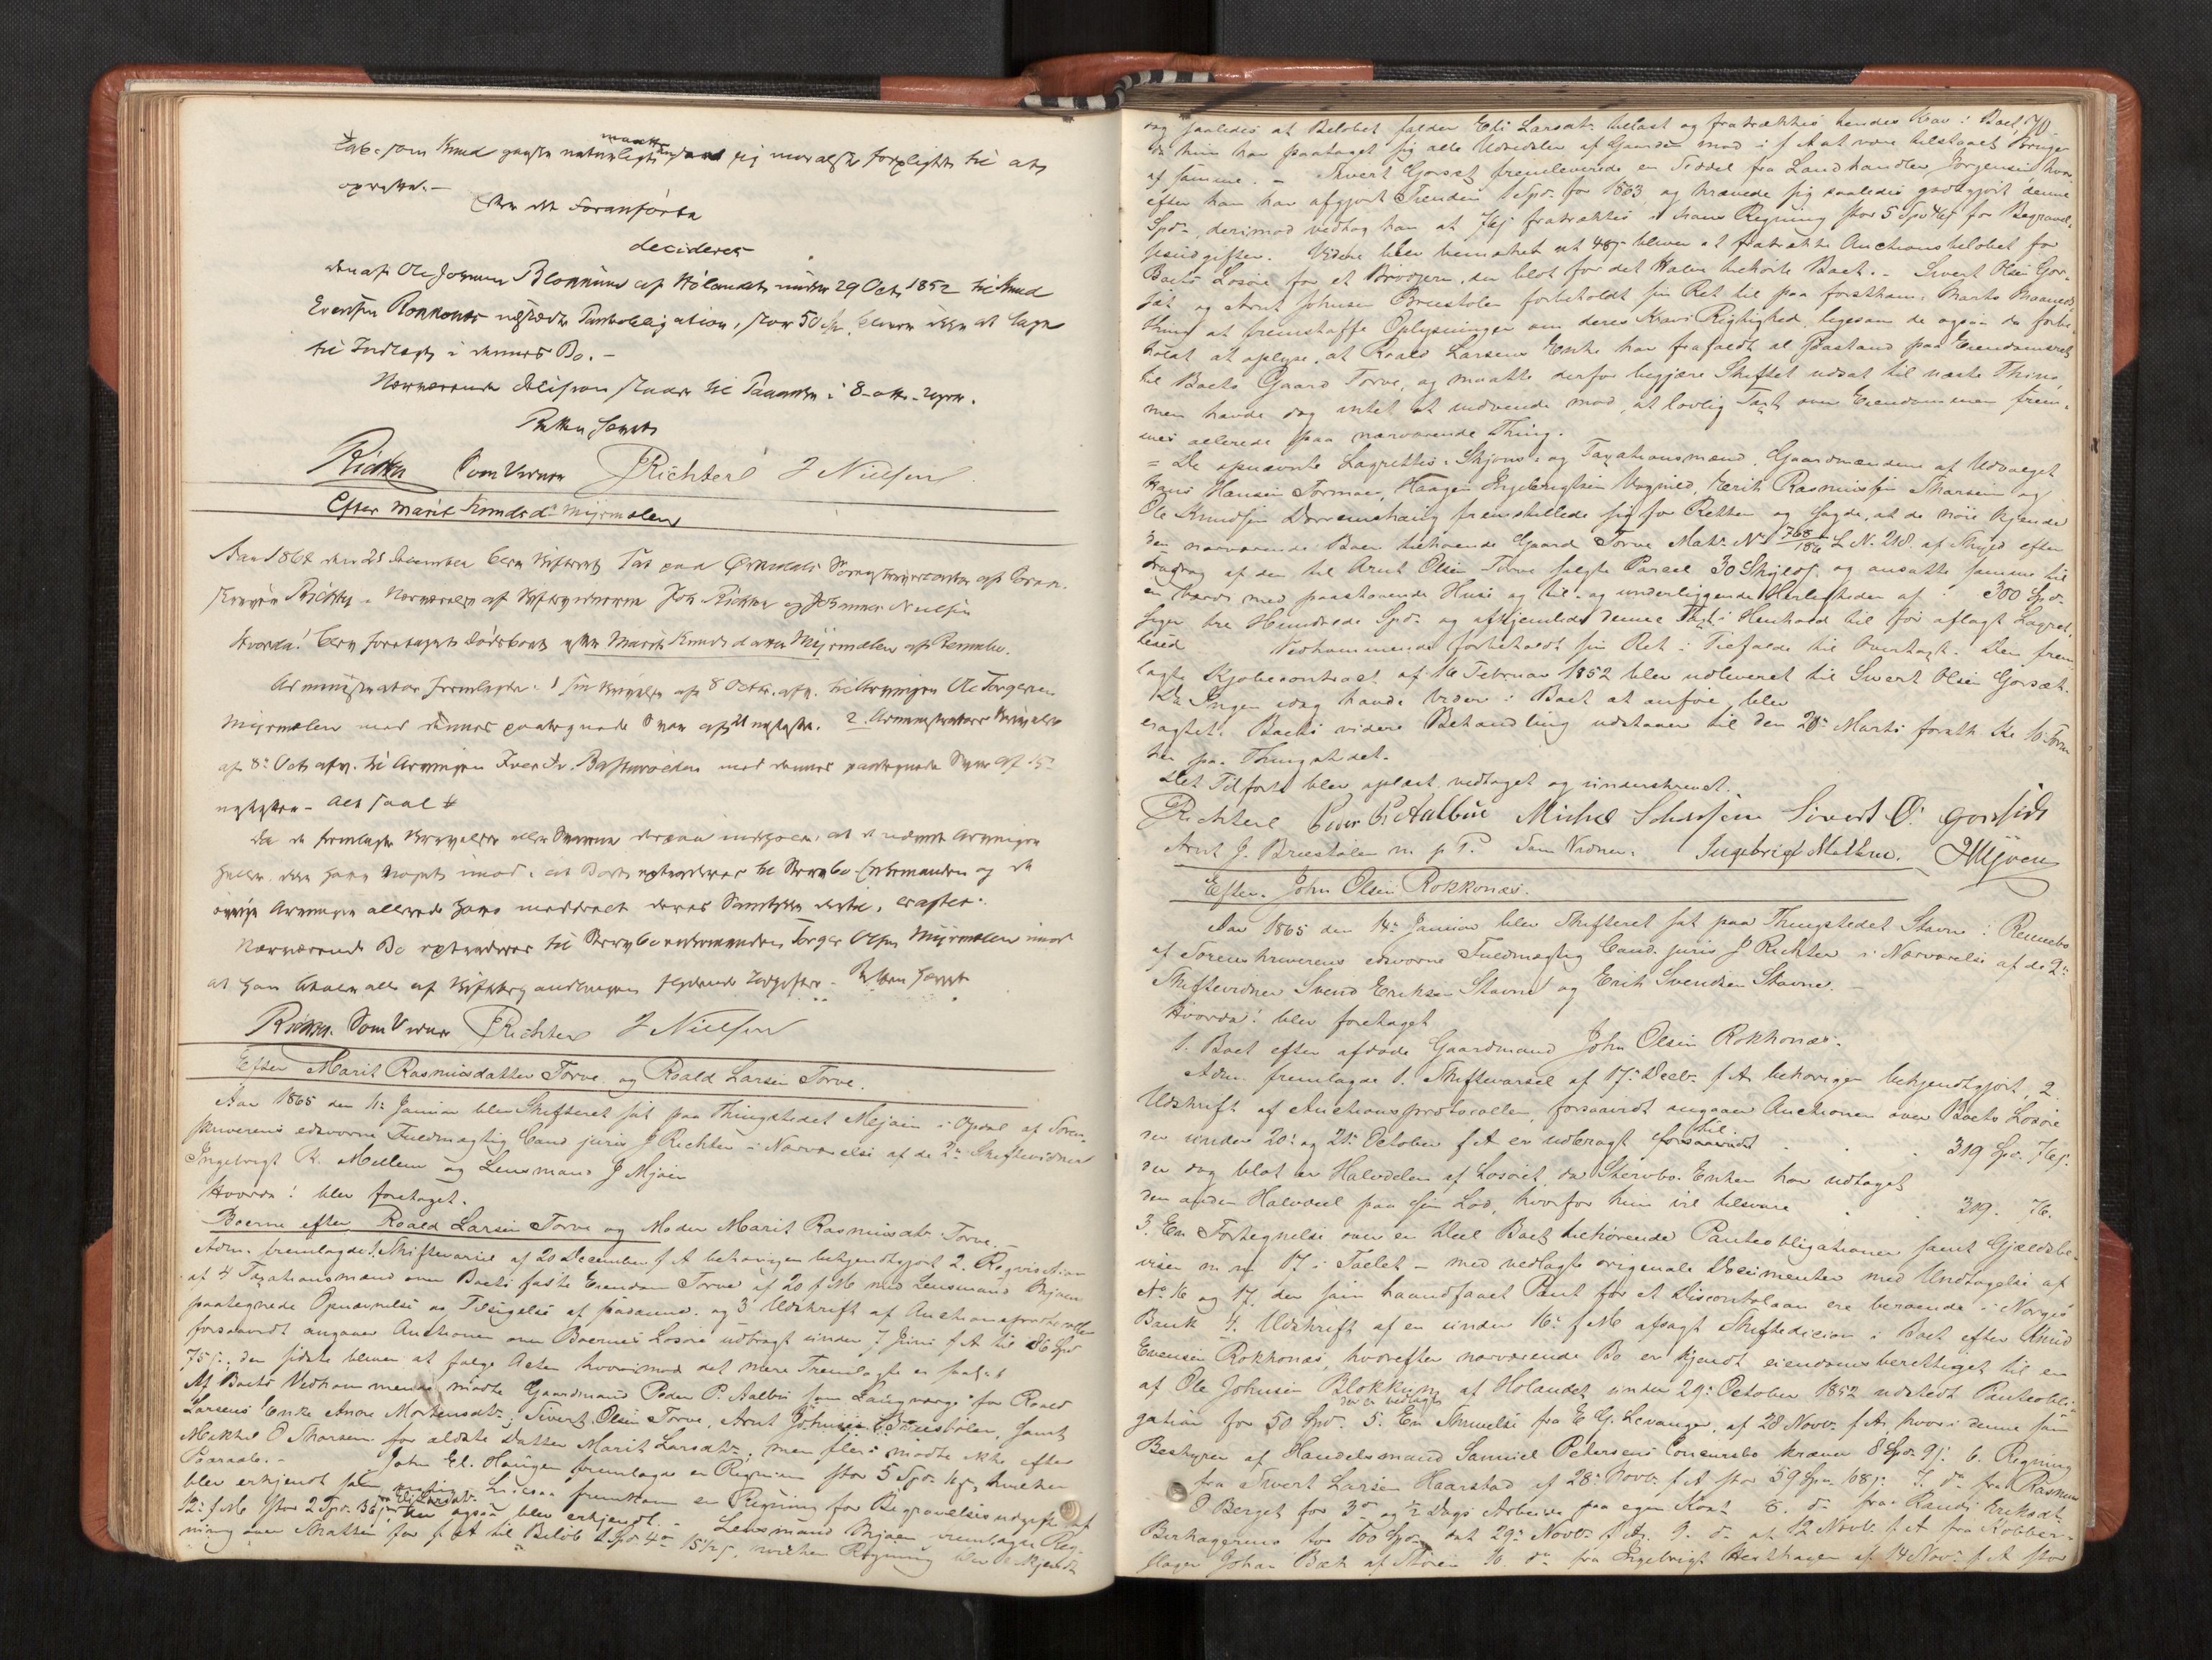 Tab. som Knud ganske naturligt maatte ansee sig moralsk forpligtet til at
oprette.-
Efter det Foranførte
decideres
den af Ole Johnsen Blokkum af Hølandet under 29 Octr 1852 til Knud
Evensen Rokkones udstædte Pantobligation, stor 50 Spd, bliver ikke at tage
til Indtægt i dennes Bo.-
Nærværende Decision staaer til Paaanke i 8-otte-Uger.
Retten hævet
Richter Som Vidner J Richter J Nielsen
Efter Marit Knudsdr Mjrmælen
Aar 1864 den 21 December blev Skifteret sat paa Ørkedals Sorenskrivercontor af Soren-
skriver Richter i Nærværelse af Skiftevidnerne Joh Richter og Johannes Nielsen
Hvorda! blev foretaget Dødsboet efter Marit Knudsdatter Mjrmælen af Rennebo.
Administrator fremlagde: 1 sin Skrivelse af 8 Octbr. til Arvingen Ole Torgersen
Mjrmælen med dennes paategnede Svar af 21 næstefter. 2. Administrators Skrivelse
af 8de Octr til Arvingen Iver med dennes paategnede Svar af 15
næstefter - Alt saal.
Da de fremlagte Skrivelser eller Svarene derpaa indeholde, at de nævnte Arvinger
heller ikke have Noget imod, at Boet extraderes til Stervbo Enkemanden og de
øvrige Arvinger allerede have meddelt deres Samtykke dertil, eragtes:
Nærværende Bo extraderes til Stervboenkemanden Torger Olsen Mjrmælen imod
at han betaler alle af Skiftebehandlingen flydende Udgifter. Retten hævet
Richter. Som Vidner J Richter J Nielsen
Efter Marit Rasmusdatter Torve og Roald Larsen Torve.
Aar 1865 den 11te Januar blev Skifteret sat paa Thingstedet Mjøen i Opdal af Soren-
skriverens edsvorne Fuldmægtig Cand juris J Richter i Nærværelse af de 2de Skiftevidner
Ingebrigt R. Mellem og Lensmand J Mjøen
Hvorda! blev foretaget.
Boerne efter Roald Larsen Torve og Moder Marit Rasmusdtr Torve.-
Adm. fremlagde 1. Skiftevarsel af 20 December f A behørigen bekjendtgjort 2. Reqvisition
af 4 Taxationsmænd over Boets faste Eiendom Torve af 20 f M med Lensmand Mjøen
paategnede Opnævnelse og Tilsigelse af paadømme og 3 Udskrift af Auctionsprotocollen
forsaavidt angaaer Auctionen over Boernes Løsøre udbragt under 7 Juni f A til 86 Spd
75 s.; den sidste bliver at følge Acten hvorimod det mere Fremlagte er saal.
Af Boets Vedkommende mødte Gaardmand Peder P. Aalbu som Laugværge for Roald
Larsens Enke Anne Mortensdtr, Sivert Olsen Torve, Arnt Johnsen Bruestølen, samt
Mikkel O Skarsem for ældste Datter Marit Larsdtr; men flere mødte ikke efter
Paaraab.- John El. Haugen fremlagde en Regning stor 5 Spd hvilken
blev erkjendt Ligesaa fremkom en Regning for Begravelsesudgifter af
12te f M stor 2 Spd. 36 s fra Eli Larsdtr der ogsaa blev erkjendt.- Lensmand Mjøen fremlagde Reg-
ning over Skatten for f A til Beløb 2 Spd 4 15 1/2 s, hvilken Regning blev erkjendt
70.
dog saaledes at Beløbet falder Eli Larsdtr tillast og fratrækkes hendes Krav i Boet,
da hun har paataget sig alle Udredsler af Gaarden mod i f A at være tilstaaet Bruger
af samme.- Sivert Gorset fremleverede en Seddel fra Landhandler Jørgensen hvor-
efter han har afgjort Tienden 1 Spd. for 1863 og krævede sig saaledes godtgjort denne
Spd-, derimod vedtog han at 76 s fratrækkes i hans Regning stor 5 Spd 76 s for Begravel-
sesudgifter. Videre blev bemærket at 48 s bliver at fratrække Auctionsbeløbet for
Boets Løsøre for et Brodjern, der blot for det Halve tilhørte Boet.- Sivert Olsen Gor-
set og Arnt Johnsen Bruestølen forbeholdt sin Ret til paa førstkom. Marts Maaneds
Thing at fremskaffe Oplysninger om deres Kravs Rigtighed, ligesom de ogsaa da forbe-
holdt at oplyse, at Roald Larsens Enke har frafaldt al Paastand paa Eiendomsret
til Boets Gaard Torve, og maatte derfor begjære Skiftet udsat til næste Thing,
men havde dog intet at indvende mod, at lovlig Taxt over Eiendommen frem-
mes allerede paa nærværende Thing.
= De opnævnte Lagrettes-, Skjøns- og Taxationsmænd. Gaardmændene af Udvalget
Hans Hansen Tørmoe, Haagen Ingebrigtsen Vognild, Erik Rasmussen Skarsem og
Ole Knudsen Dørremshaug fremstillede sig for Retten og sagde, at de nøie kjende
den nærværende Boer tilhørende Gaard Torve Matr. No 768/186 L N. 218. af Skyld efter
Fradrag af den til Arnt Olsen Torve solgte Parcel 30 Skjeds. og ansatte samme til
en Værdi med paastaaende Huse og til- og underliggende Herligheder af: 300 Spd.
siger tre Hundrede Spd. og afhjemlede denne Taxt i Henhold til før aflagt Lagret-
tesed Vedkommende forbeholdt sin Ret i Tilfælde til Overtaxt. Den frem-
lagte Kjøbecontract af 16 Februar 1852 blev udleveret til Sivert Olsen Gorset.
Da Ingen idag havde videre i Boet at anføre, blev
eragtet. Boets videre Behandling udstaaer til den 20de Marts førstk Kl 10 Form
her paa Thingstedet.
Det Tilførte blev oplæst, vedtaget og underskrevet.
J Richter Peder P. Aalbue Michel Sivert O: Gorseth
Arnt J. Bruestølen m. p. P. Som Vidner. Ingebrigt Mellem. J Mjøen
Efter. John Olsen Rokkonæs.
Aar 1865 den 14de Januar blev Skifteret sat paa Thingstedet Stavne i Rennebo
af Sorenskriverens edsvorne Fuldmægtig Cand. juris J Richter i Nærværelse af de 2de
Skiftevidner Svend Eriksen Stavne og Erik Svendsen Stavne.-
Hvorda! blev foretaget
1. Boet efter afdøde Gaardmand John Olsen Rokkonæs.
Adm. fremlagde 1. Skiftevarsel af 17de Decbr. f A. behørigen bekjendtgjort, 2.
Udskrift af Auctionsprotocollen, forsaavidt angaaer Auctionen over Boets Løsøre
der under 20de og 21de October f A er udbragt til . . 319 Spd. 76 s.
der dog blot er Halvdelen af Løsøret, da Stervbo-Enken har udtaget
den anden Halvdeel paa sin Lod, hvorfor hun vil tilsvare . . 319. 76.
3. En Fortegnelse over en Deel Boet tilhørende Panteobligationer samt Gjældsbe-
viser m. m 17 i Tallet - med vedlagte originale Documenter med Undtagelse af
No 16 og 17, der som haandfaaet Pant for et Discontolaan ere beroende i Norges
Bank 4. Udskrift af en under 16de f M afsagt Skiftedecision i Boet efter Knud
Evensen Rokkonæs, hvorefter nærværende Bo er kjendt eiendomsberettiget til en
af Ole Johnsen Blokkum af Hølandet under 29de October 1852 udstedt Panteobli-
gation for 50 Spd. der er vedlagt 5. En Skrivelse fra E G. Levanger, af 28 Novbr. f A, hvori denne som
Bestyrer af Handelsmand Samuel Petersens Concursbo kræver 8 Spd. 91. 6. Regning
fra Sivert Larsen Haarstad af 28de Novbr. f A stor 59 Spd. 108 s. 7. do fra Rasmus
O Berget for 3de og 1/2 Dags Arbeide paa egen Kost 8. do fra Randi Eriksdtr.
Berkageeng for 100 Spd. dat 29de Novbr. f A. 9. do af 12 Novbr. f A fra Kobber-
slager Johan Bæk af Støren 10. do fra Ingebrigt Herkhagen af 14 Nov. f A stor